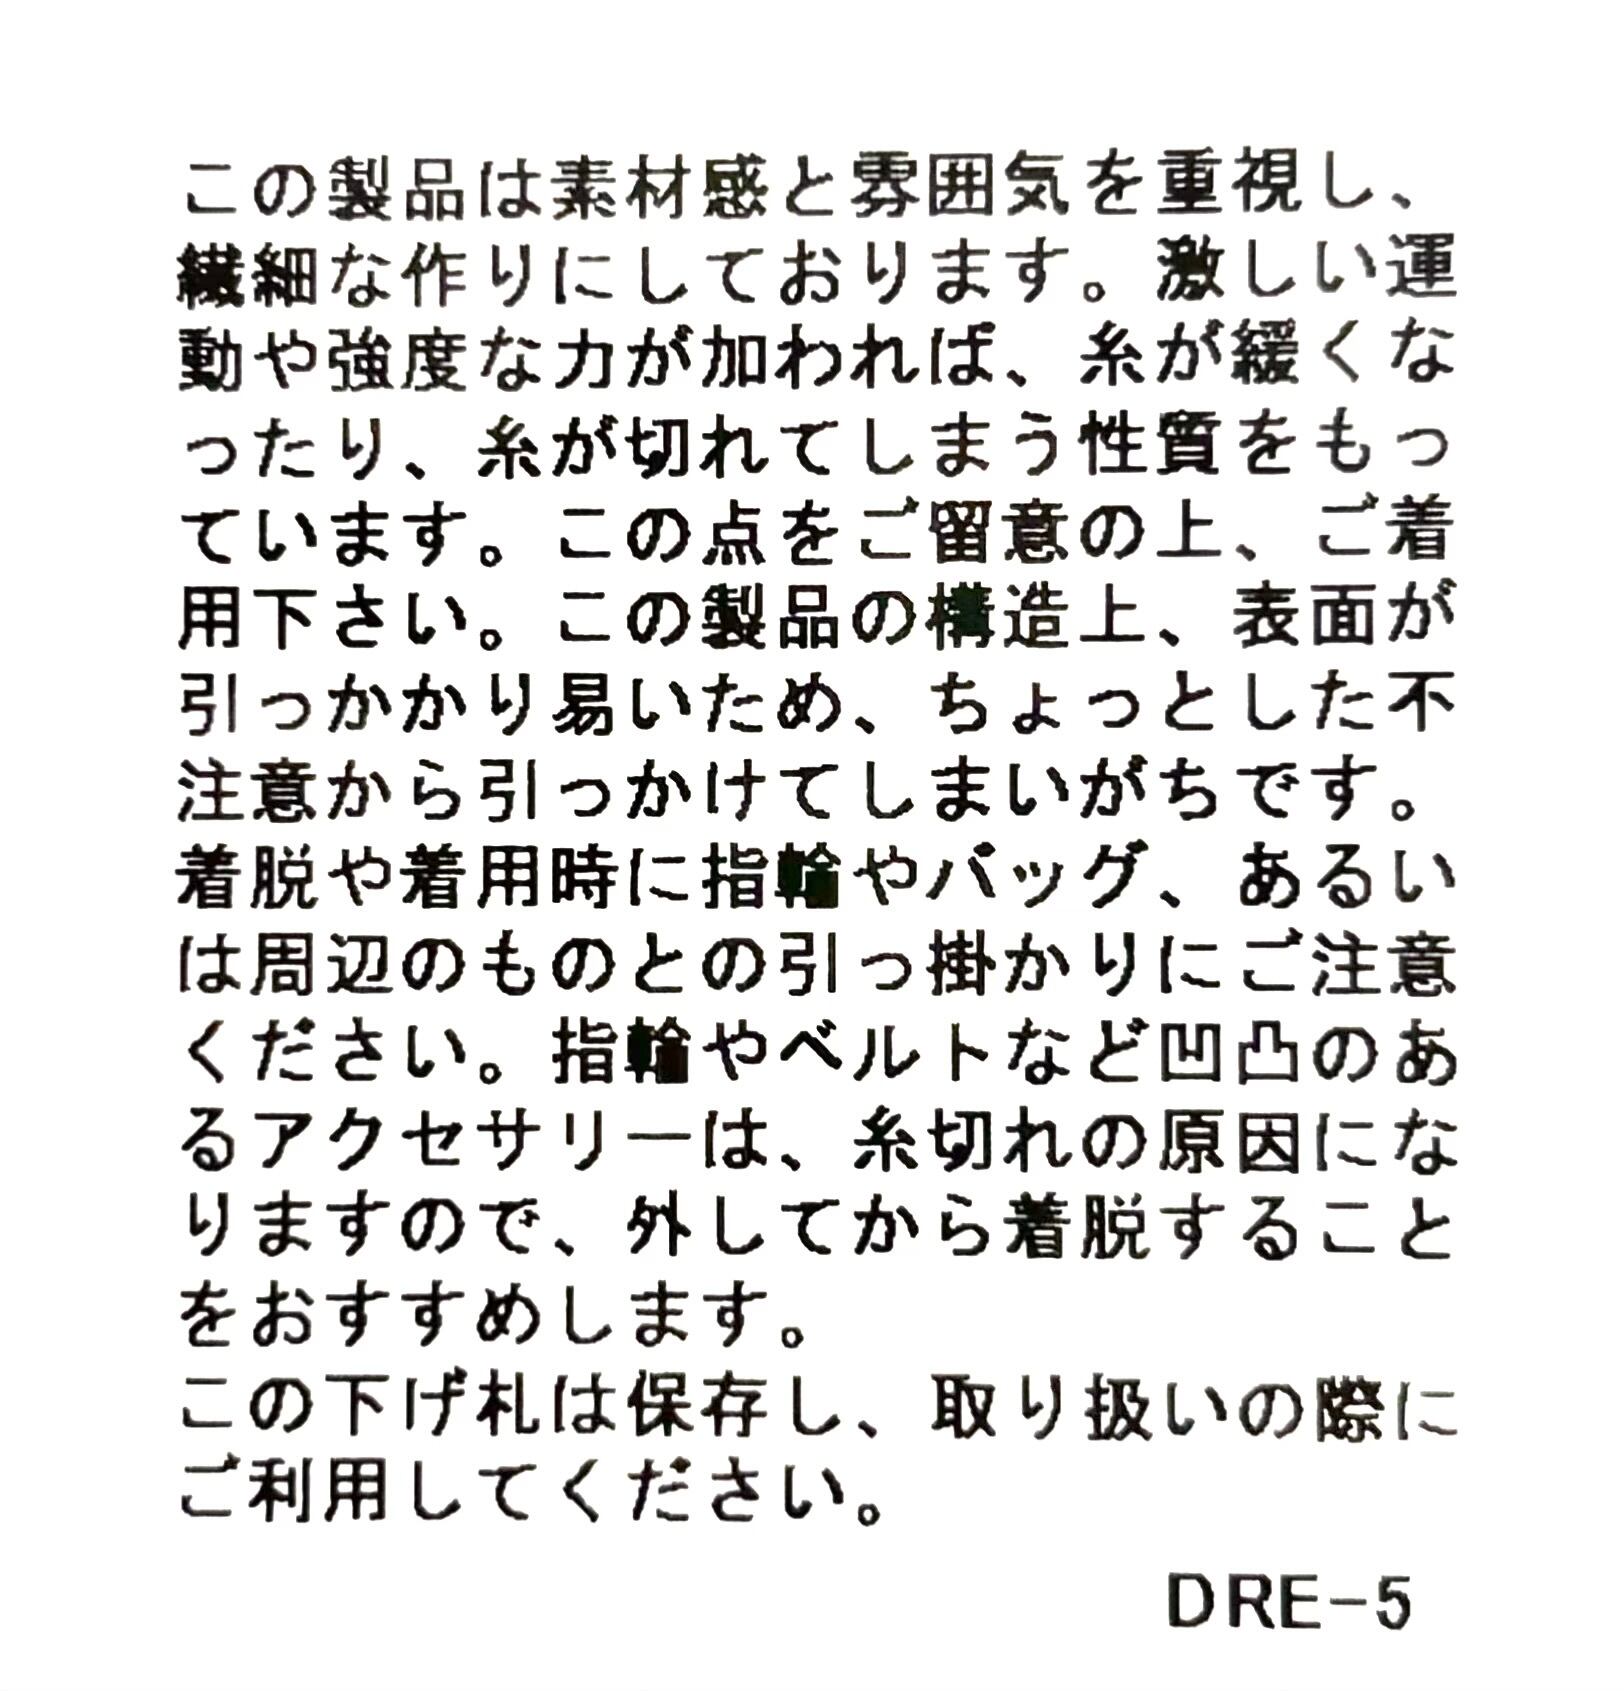 この製品は素材感と雰囲気を重視し、
繊細な作りにしております。激しい運
動や強度な力が加われば、糸が緩くな
ったり、糸が切れてしまう性質をもっ
ています。この点をご留意の上、ご着
用下さい。この製品の構造上、表面が
引っかかり易いため、ちょっとした不
注意から引っかけてしまいがちです。
着脱や着用時に指輪やバッグ、あるい
は周辺のものとの引っ掛かりにご注意
ください。指輪やベルトなど凹凸のあ
るアクセサリーは、糸切れの原因にな
りますので、外してから着脱すること
をおすすめします。
この下げ札は保存し、取り扱いの際に
ご利用してください。
DRE-5